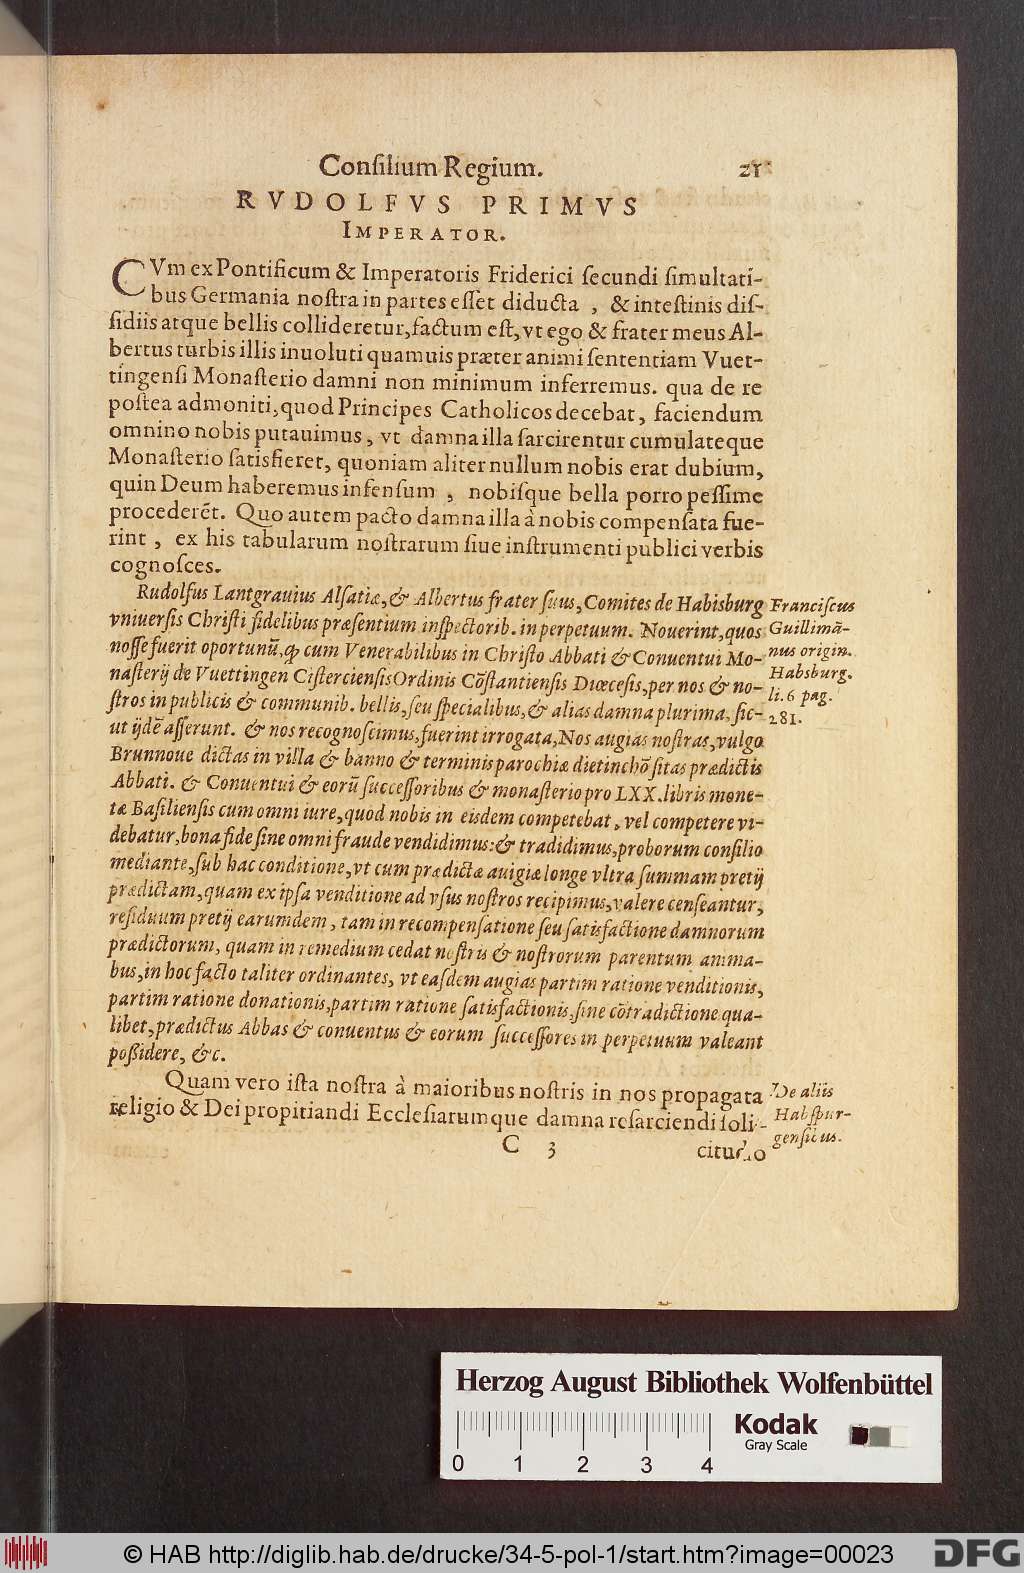 Conſilium Regium. 21
RVDOLFVS PRIMVS
IMPERATOR.
CVm ex Pontificum & Imperatoris Friderici ſecundi ſimultati-
bus Germania noſtra in partes eſſet diducta , & inteſtinis diſ-
ſidiis atque bellis collideretur, factum eſt, vt ego & frater meus Al-
bertus turbis illis inuoluti quamuis præter animi ſententiam Vuet-
tingenſi Monaſterio damni non minimum inferremus. qua de re
poſtea admoniti, quod Principes Catholicos decebat, faciendum
omnino nobis putauimus, vt damna illa ſarcirentur cumulateque
Monaſterio ſatisfieret, quoniam aliter nullum nobis erat dubium,
quin Deum haberemus infenſum , nobiſque bella porro peſſime
procederẽt. Quo autem pacto damna illa à nobis compenſata fue-
rint , ex his tabularum noſtrarum ſiue inſtrumenti publici verbis
cognoſces.
Rudolfus Lantgrauius Alſatiæ, & Albertus frater ſuus, Comites de Habisburg
vniuerſis Chriſti fidelibus præſentium inſpectorib. in perpetuum. Nouerint, quos
noſſe fuerit oportunũ, ꝙ cum Venerabilibus in Chriſto Abbati & Conuentui Mo-
naſterij de Vuettingen Ciſtercienſis Ordinis Cõſtantienſis Diœceſis, per nos & no-
ſtros in publicis & communib. bellis, ſeu ſpecialibus, & alias damna plurima, ſic-
ut ijdẽ aſſerunt. & nos recognoſcimus, fuerint irrogata, Nos augias noſtras, vulgo
Brunnoue dictas in villa & banno & terminis parochiæ dietinchõ ſitas prædictis
Abbati. & Conuentui & eorũ ſucceſſoribus & monaſterio pro LXX. libris mone-
tæ Baſilienſis cum omni iure, quod nobis in eisdem competebat, vel competere vi-
debatur, bona fide ſine omni fraude vendidimus: & tradidimus, proborum conſilio
mediante, ſub hac conditione, vt cum prædictæ auigiæ longe vltra ſummam pretij
prædictam, quam ex ipſa venditione ad vſus noſtros recipimus, valere cenſeantur,
reſiduum pretij earumdem, tam in recompenſatione ſeu ſatisfactione damnorum
prædictorum, quam in remedium cedat noſtris & noſtrorum parentum anima-
bus, in hoc facto taliter ordinantes, vt eaſdem augias partim ratione venditionis,
partim ratione donationis, partim ratione ſatisfactionis, ſine cõtradictione qua-
libet, prædictus Abbas & conuentus & eorum ſucceſſores in perpetuum valeant
poßidere, &c.
Franciſcus
Guillimã-
nus origin.
Habsburg.
li. 6 pag.
281.
Quam vero iſta noſtra à maioribus noſtris in nos propagata
religio & Dei propitiandi Eccleſiarumque damna reſarciendi ſoli-
De aliis
Habſpur-
genſibus.
C 3 citudo
Herzog August Bibliothek Wolfenbüttel
Kodak
Gray Scale
0 1 2 3 4
© HAB http://diglib.hab.de/drucke/34-5-pol-1/start.htm?image=00023
DFG